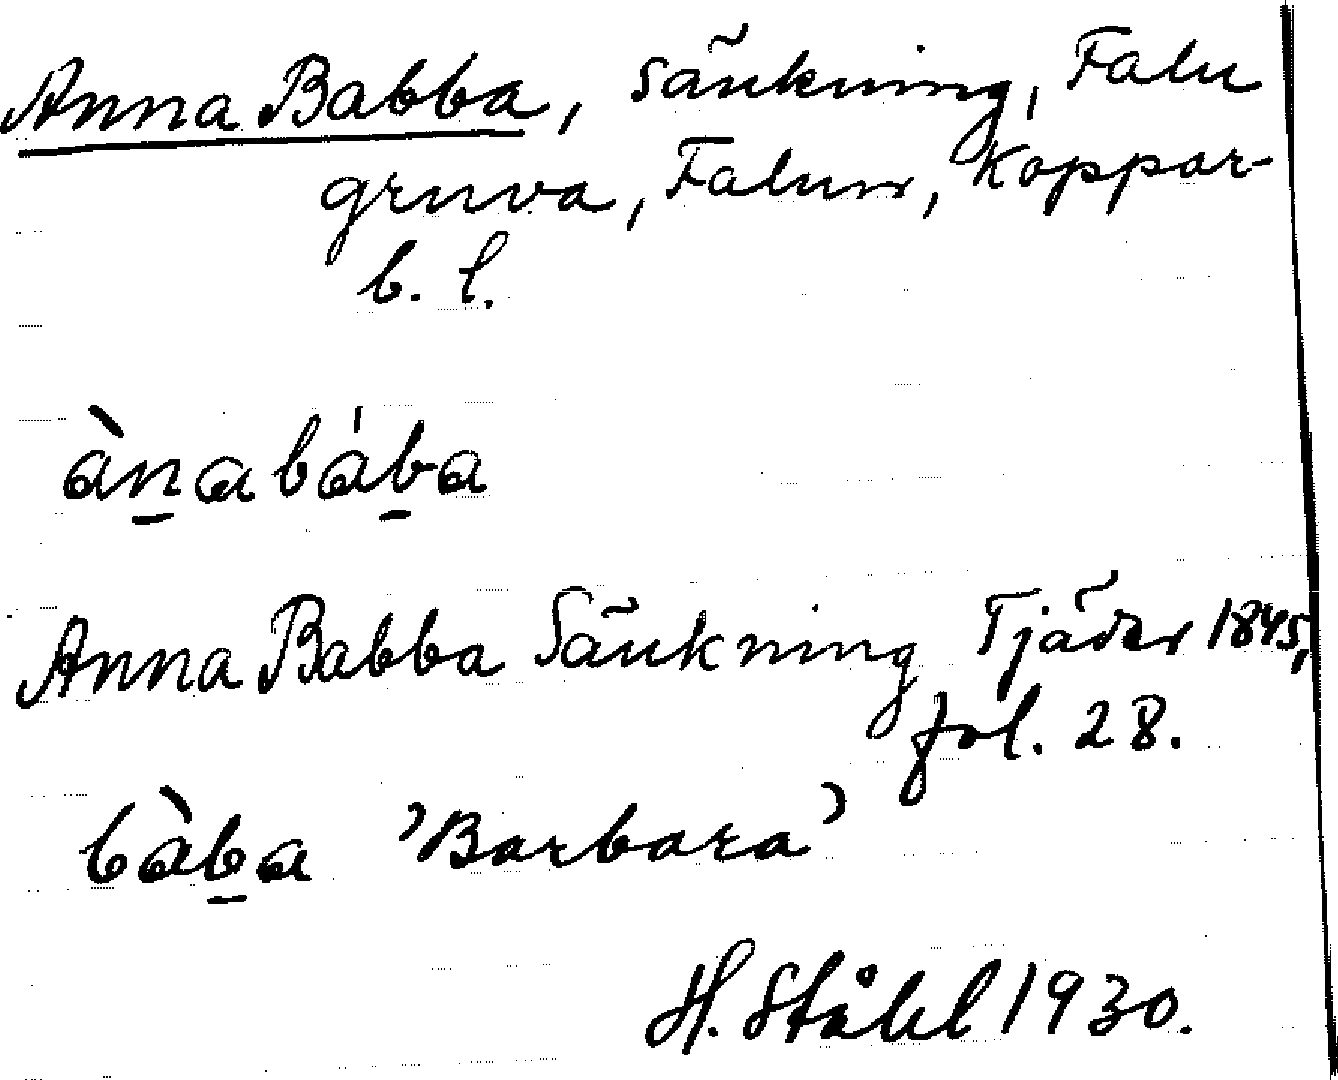 Anna Babba, sänkning, Falu
gruva, Falun, Koppar-
b. l.
àn̠abáb̠a
Anna Babba Sänkning Tjäder 1845,
fol. 28.
bàb̠a 'Barbara'
H. Ståhl 1930.